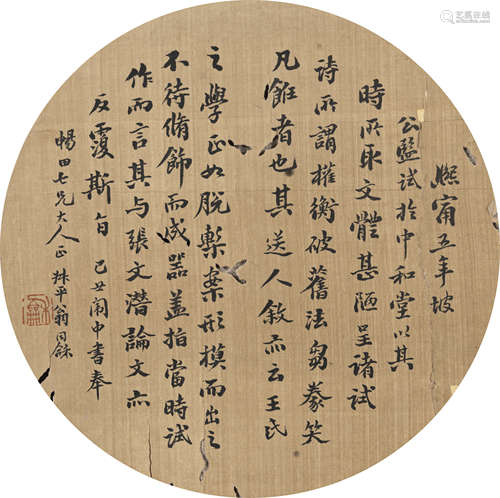 熙甯五年坡
公監試於中和堂以其
時所取文體甚陋呈諸試
詩所謂權衡破舊法芻豢笑
凡飪者也其送人敘亦云王氏
之學正如脫槧案形模而出之
不待脩飾而成器蓋指當時試
作而言其与張文潛論文亦
反覆斯旨 己丑闈中書奉
暢田七兄大人正 叔平翁同龢
易拍全球
yachang.com